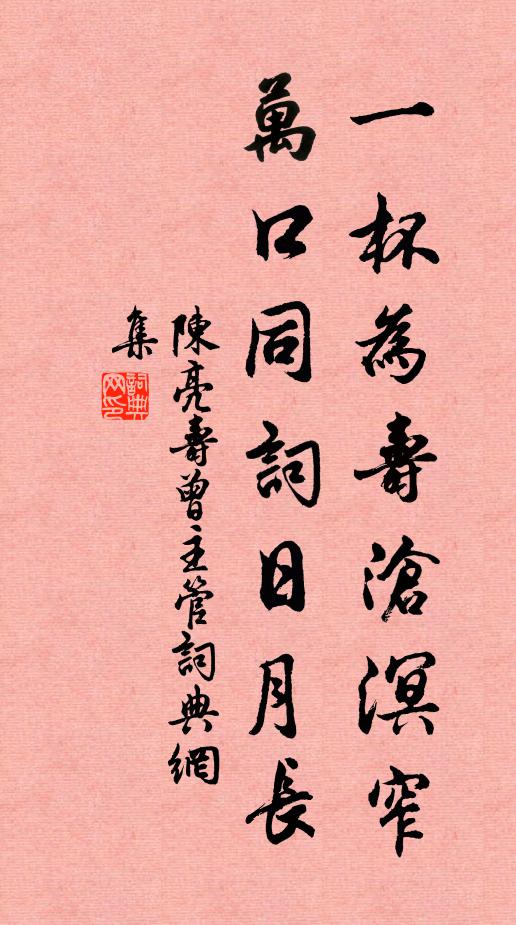 一杯為壽滄溟窄
萬口同詞日月長
陳亮壽曾主管詞典網
集
詞典
网印